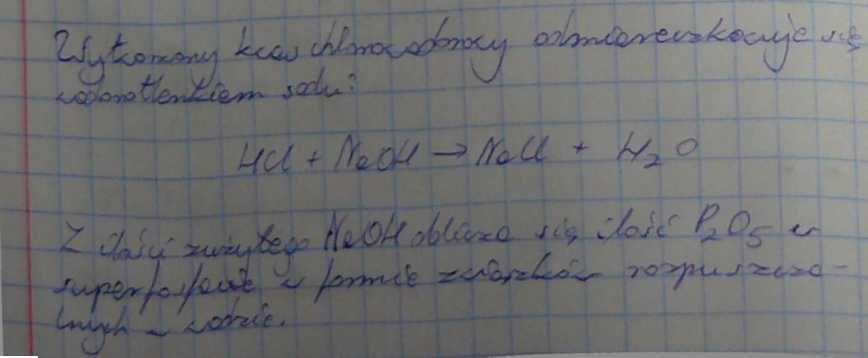 Wytworzony kwas chlorowodorowy odmiareczkowuje się
wodorotlenkiem sodu:
HCl + NaOH → NaCl + H₂O
Z ilości zużytego NaOH oblicza się ilość P₂O₅ w
superfosfacie w formie związków rozpuszcza-
lnych w wodzie.